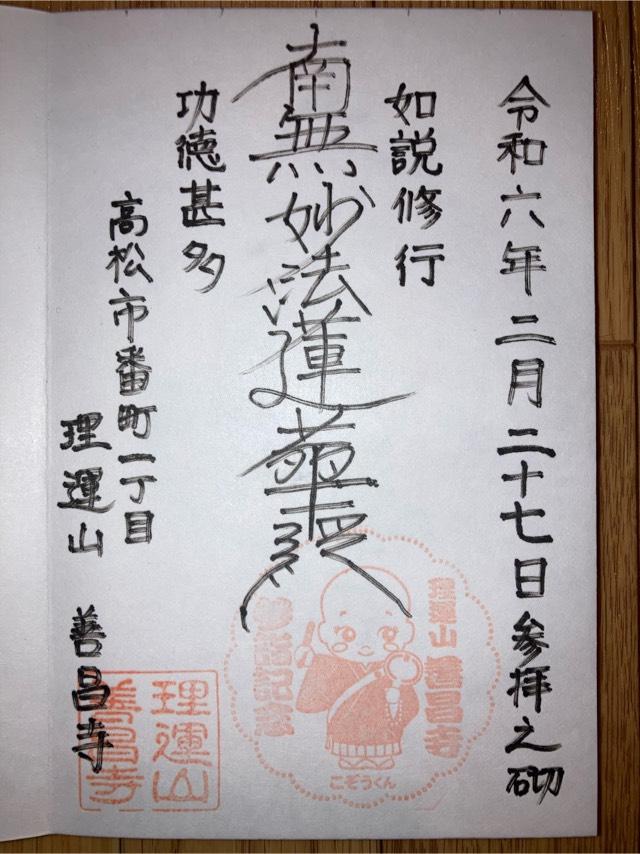 令和六年二月二十七日参拝之砌
如説修行
南無妙法蓮華経
功徳甚多
高松市番町一丁目
理運山 善昌寺
理運山
善昌寺
参詣記念
こぞうくん
理運山
善昌寺